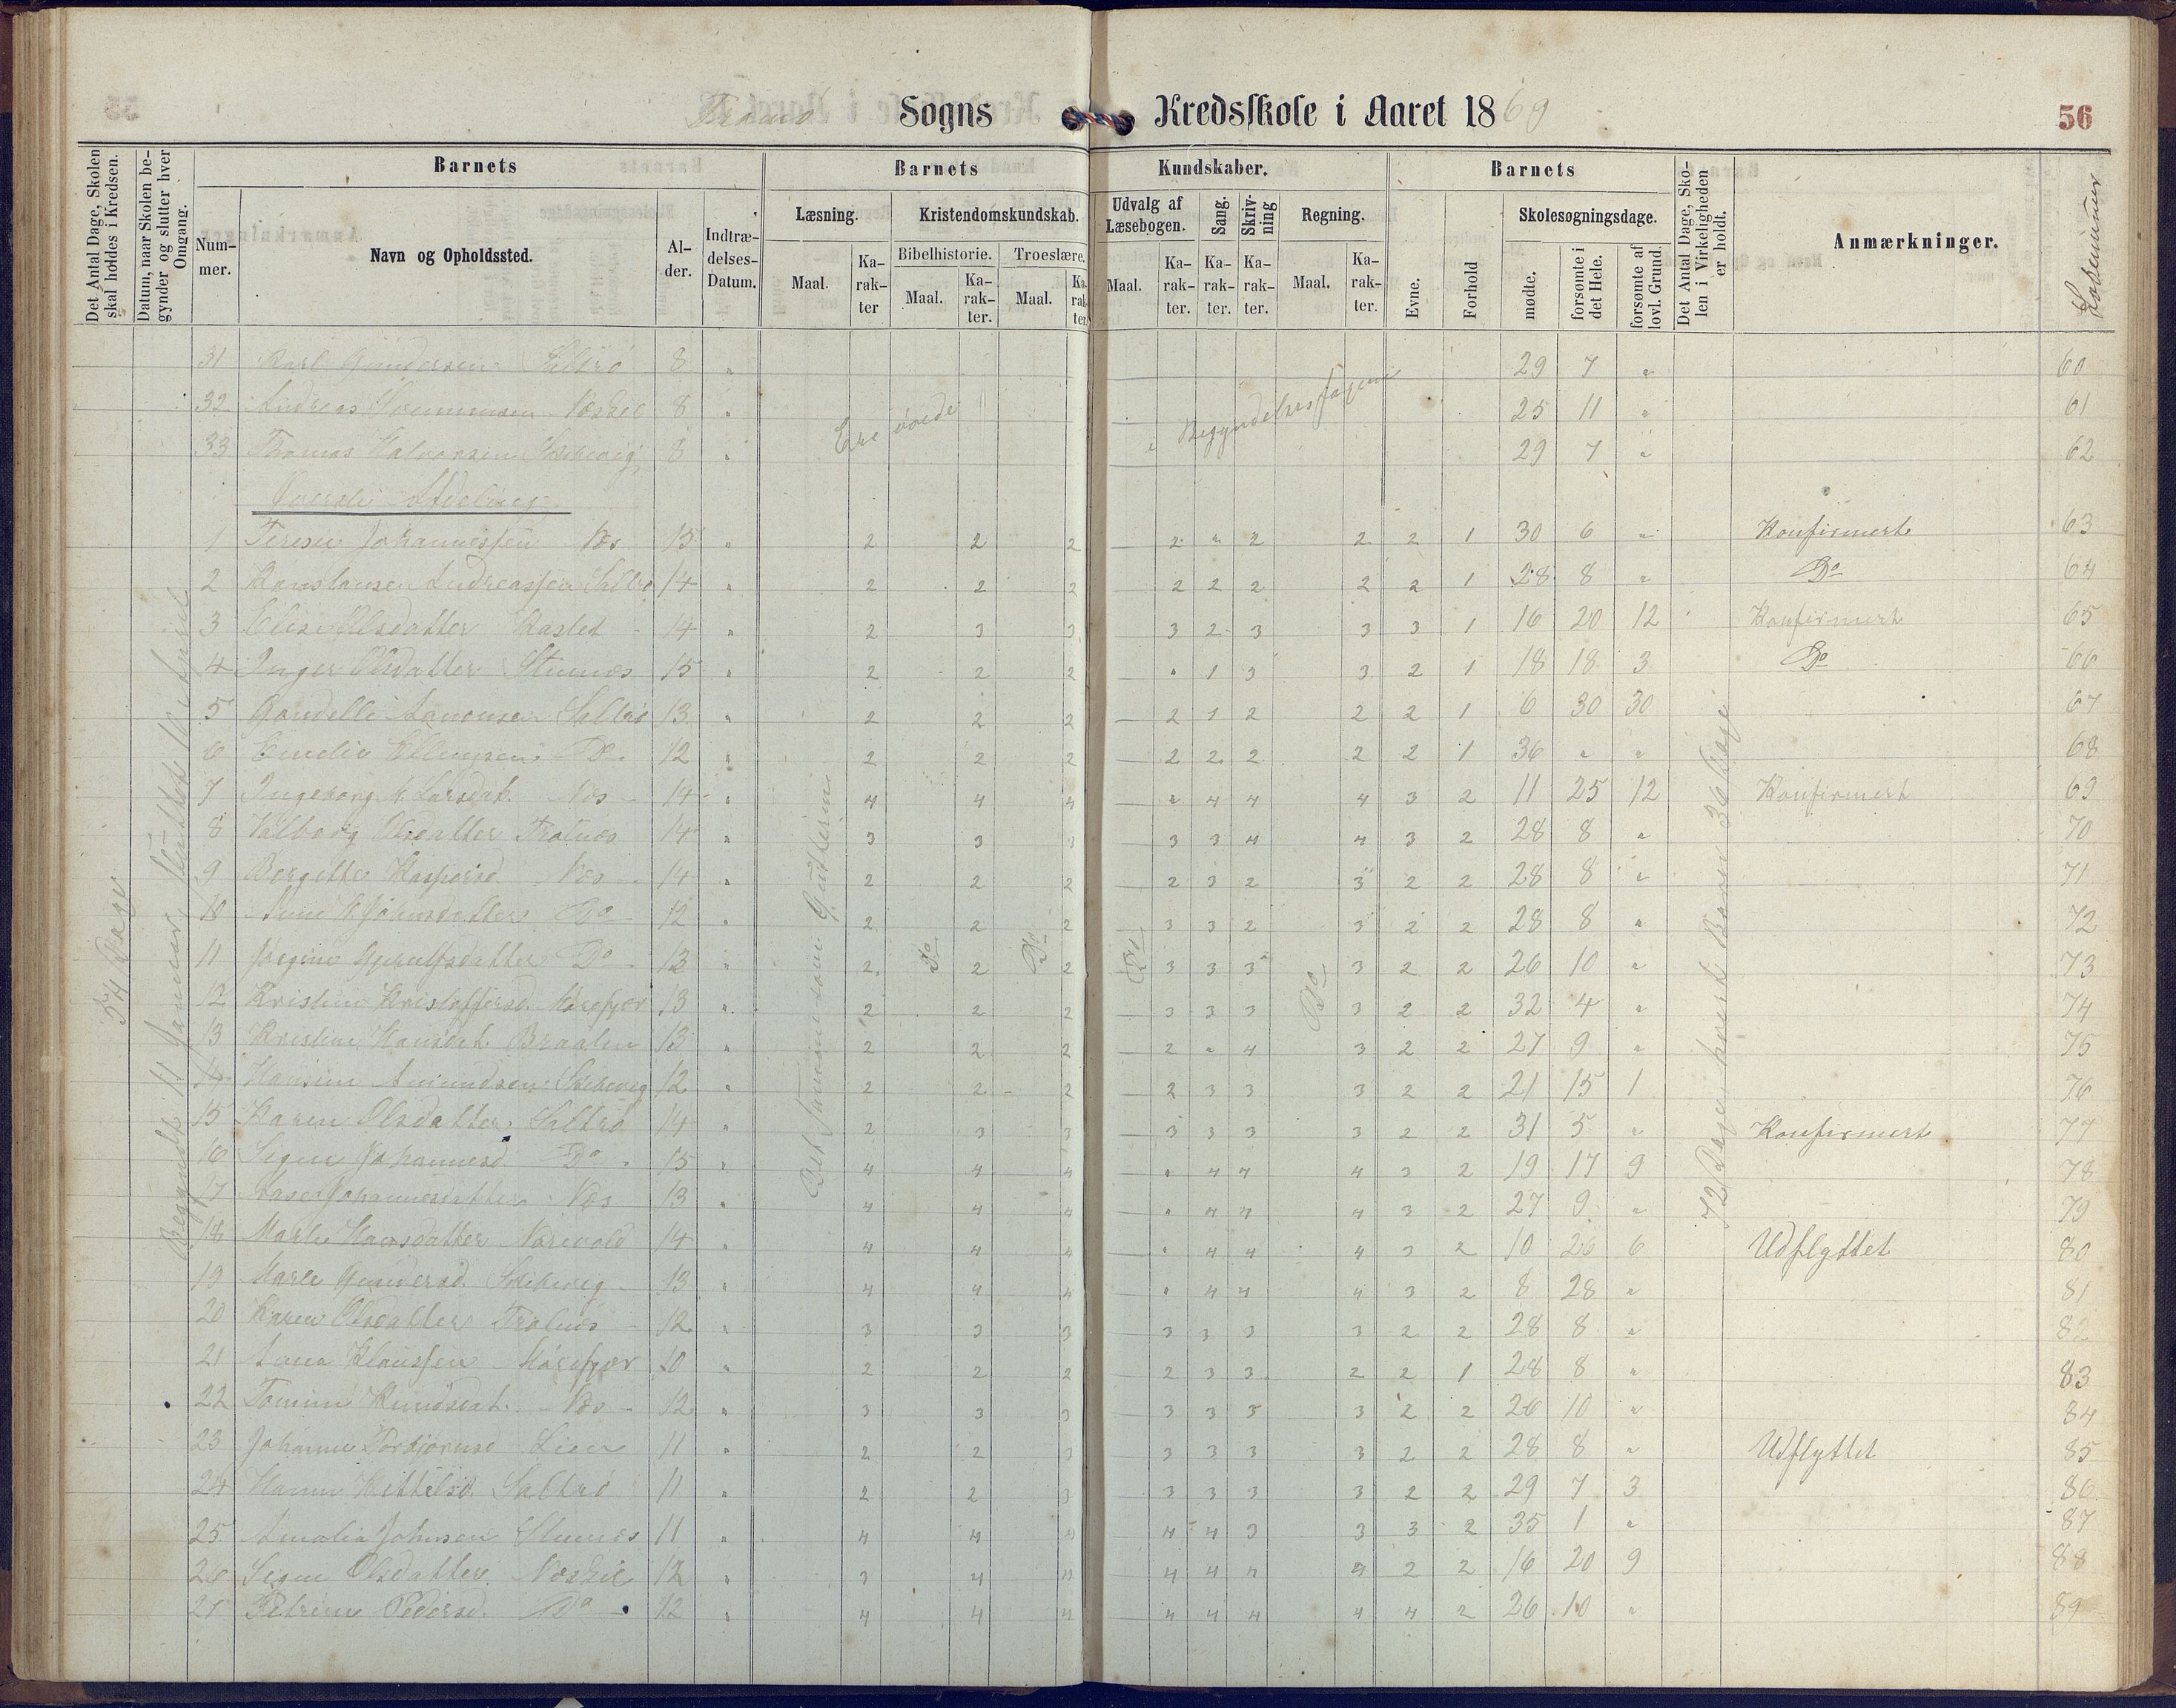 Sogns Kredsskole i Aaret 1869 56
Det Antal Dage, Skolen skal holdes i Kredsen.
Datum, naar Skolen begynder og slutter hver Omgang.
Barnets
Nummer.
Navn og Opholdssted.
Alder.
Indtrædelses-Datum.
Barnets Kundskaber.
Læsning.
Maal.
Karakter
Kristendomskundskab.
Bibelhistorie.
Maal.
Karakter.
Troeslære.
Maal.
Karakter.
Udvalg af Læsebogen.
Maal.
Karakter.
Sang.
Karakter.
Skrivning
Karakter.
Regning.
Maal.
Karakter.
Barnets
Evne.
Forhold
Skolesøgningsdage.
mødte.
forsømte i det Hele.
forsømte af lovl. Grund.
Det Antal Dage, Skolen i Virkeligheden er holdt.
Anmærkninger.
Løbenummer
31 Karl Gundersen Saltrö 8 " 29 7 " 60
32 Andreas Næskil 8 " 25 11 " 61
33 Thomas Halvorsen 8 " 29 7 " 62
Ere övede i Begyndelsesfagene
Øverste Afdeling
1 Terese Johannessen Næs 15 " 2 2 2 2 " 2 2 2 1 30 6 " Konfirmert 63
2 Andreassen Saltrö 14 " 2 2 2 2 2 2 2 2 1 28 8 " Do 64
3 Elise Olsdatter 14 " 2 3 3 3 2 3 3 3 1 16 20 12 Konfirmert 65
4 Inger Olsdatter Stuenæs 15 " 2 2 2 " 1 3 3 2 1 18 18 3 Do 66
5 Saltrö 13 " 2 2 2 2 1 2 2 2 1 6 30 30 67
6 Emelie Ellingsen Do 12 " 2 2 2 2 2 2 2 2 1 36 " " 68
7 Ingeborg K. Larsdat. Næs 14 " 4 4 4 " 4 4 4 3 2 11 25 12 Konfirmert 69
8 Valborg Olsdatter 14 " 3 3 3 3 3 4 4 3 2 28 8 " 70
9 Bergitte Kaspersd. Næs 14 " 2 2 2 2 3 2 3 2 2 28 8 " 71
10 Johnsdatter Do 12 " 2 2 2 3 3 2 3 2 2 28 8 " 72
11 Jörgine Do 13 " 2 2 2 3 3 3 3 2 2 26 10 " 73
12 Kristine Kristoffersd. Mörefjær 13 " 2 2 2 3 3 3 3 2 2 32 4 " 74
13 Kristine Hansdat. Braaten 13 " 2 2 2 2 " 4 3 2 2 27 9 " 75
14 Hansine Amundsen 12 " 2 2 2 2 3 3 3 2 2 21 15 1 76
15 Karen Olsdatter Saltrö 14 " 2 3 3 3 3 3 3 2 2 31 5 " Konfirmert 77
16 Signe Johannesd. Do 15 " 4 4 4 " 4 4 4 3 2 19 17 9 78
17 Aase Johannesdatter Næs 13 " 4 4 4 " 4 4 4 3 2 27 9 " 79
18 Marte Hansdatter 14 " 4 4 4 " 4 4 4 3 2 10 26 6 Udflyttet 80
19 Maren Gundersd. 13 " 4 4 4 " 4 4 4 3 2 8 28 " 81
20 Karen Olsdatter 12 " 3 3 3 3 3 3 3 2 2 28 8 " 82
21 Anna Klaussen Mörefjær 10 " 2 2 2 2 3 3 2 2 1 28 8 " 83
22 Tomine Knudsdat. Næs 12 " 3 3 3 3 3 3 3 2 2 26 10 " 84
23 Johanne Torbjørnsd. Lien 11 " 2 2 3 3 3 3 3 2 2 28 8 " Udflyttet 85
24 Hanne Kittelsd. Saltrö 11 " 2 2 3 3 3 3 3 2 2 29 7 3 86
25 Amalia Johnsen Stuenæs 11 " 4 4 4 4 4 3 3 3 2 35 1 " 87
26 Signe Olsdatter Næskil 12 " 3 4 4 4 4 4 4 2 2 16 20 9 88
27 Petrine Pedersd. Do 12 " 4 4 4 4 4 4 4 4 2 26 10 " 89
Dage
Begyndte 11 Januar, sluttet 10 April
Det samme som Guttterne
Do
Do
Do
Do
72 Dage, hvert Barn 36 Dage